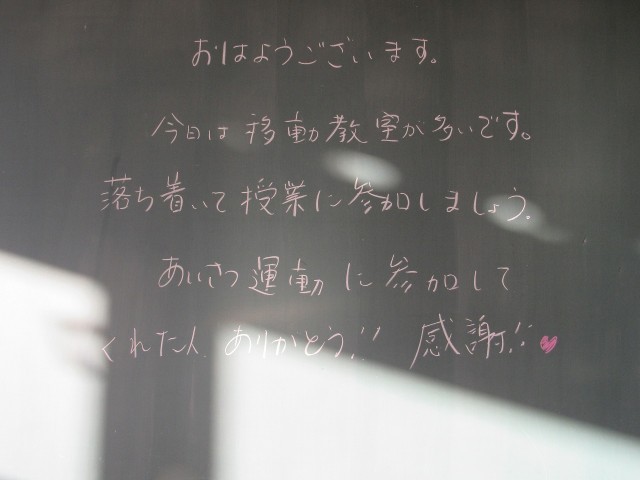 おはようございます。
今日は移動教室が多いです。
落ち着いて授業に参加しましょう。
あいさつ運動に参加して
くれた人、ありがとう!! 感謝!!♥